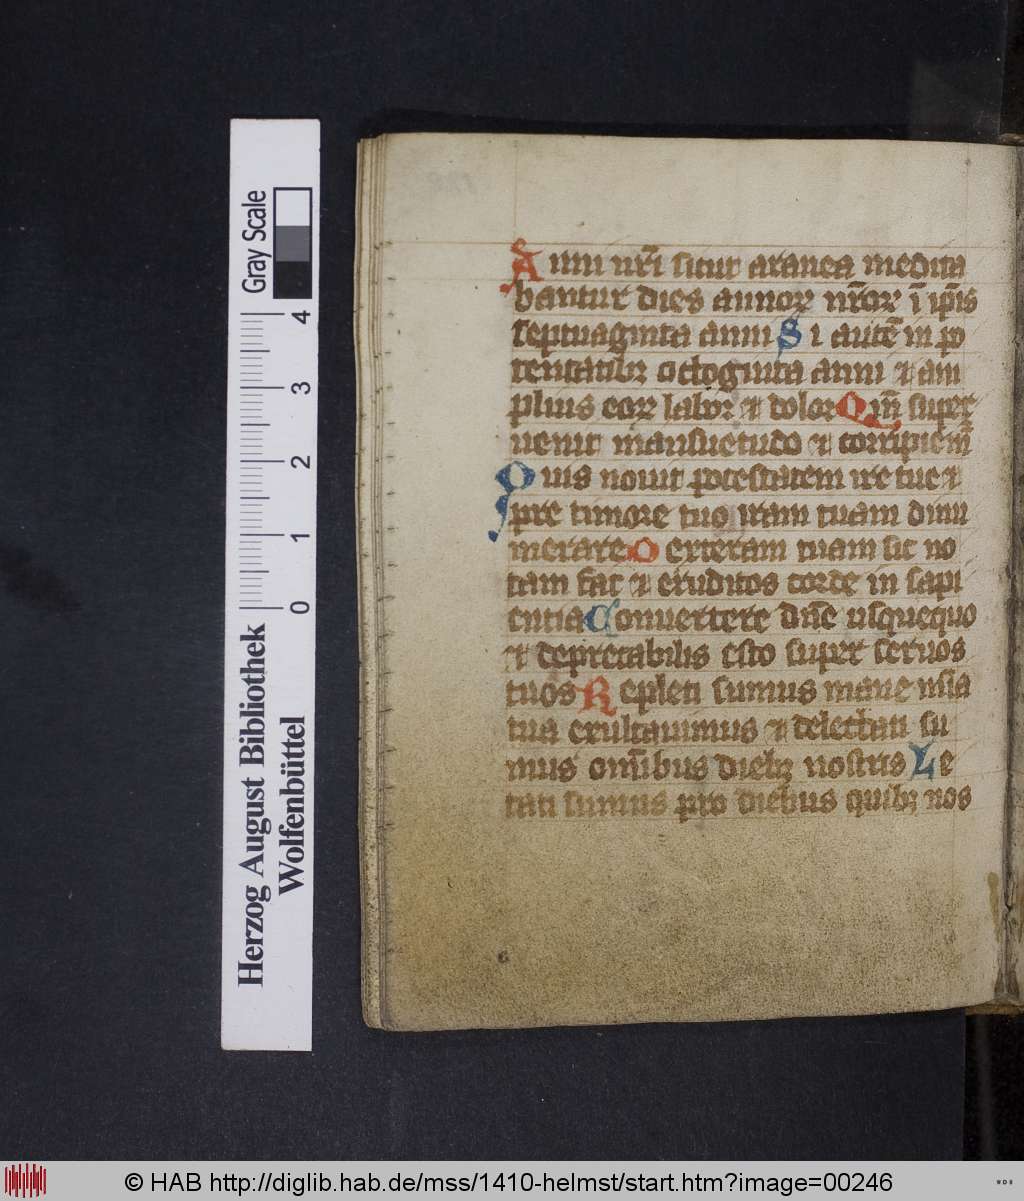 Gray Scale
4
3
2
1
0
Herzog August Bibliothek
Wolfenbüttel
Anni nr̄i sicut aranea medita
bantur dies annoꝝ nr̄oꝝ ī ip̄is
septuaginta anni Si autē in po
tentatibꝫ octoginta anni ⁊ am
plius eoꝝ labor ⁊ dolor Qm̄ super
uenit mansuetudo ⁊ corripiem̄
Quis nouit potestatem ire tue ⁊
pre timore tuo iram tuam dinu
merare Dexteram tuam sic no
tam fac ⁊ eruditos corde in sapi
entia Conuertere dn̄e usquequo
⁊ deprecabilis esto super seruos
tuos Repleti sumus mane mīa
tua exultauimus ⁊ delectati su
mus om̄ibus diebꝫ nostris Le
tati sumus pro diebus quibꝫ nos
© HAB http://diglib.hab.de/mss/1410-helmst/start.htm?image=00246